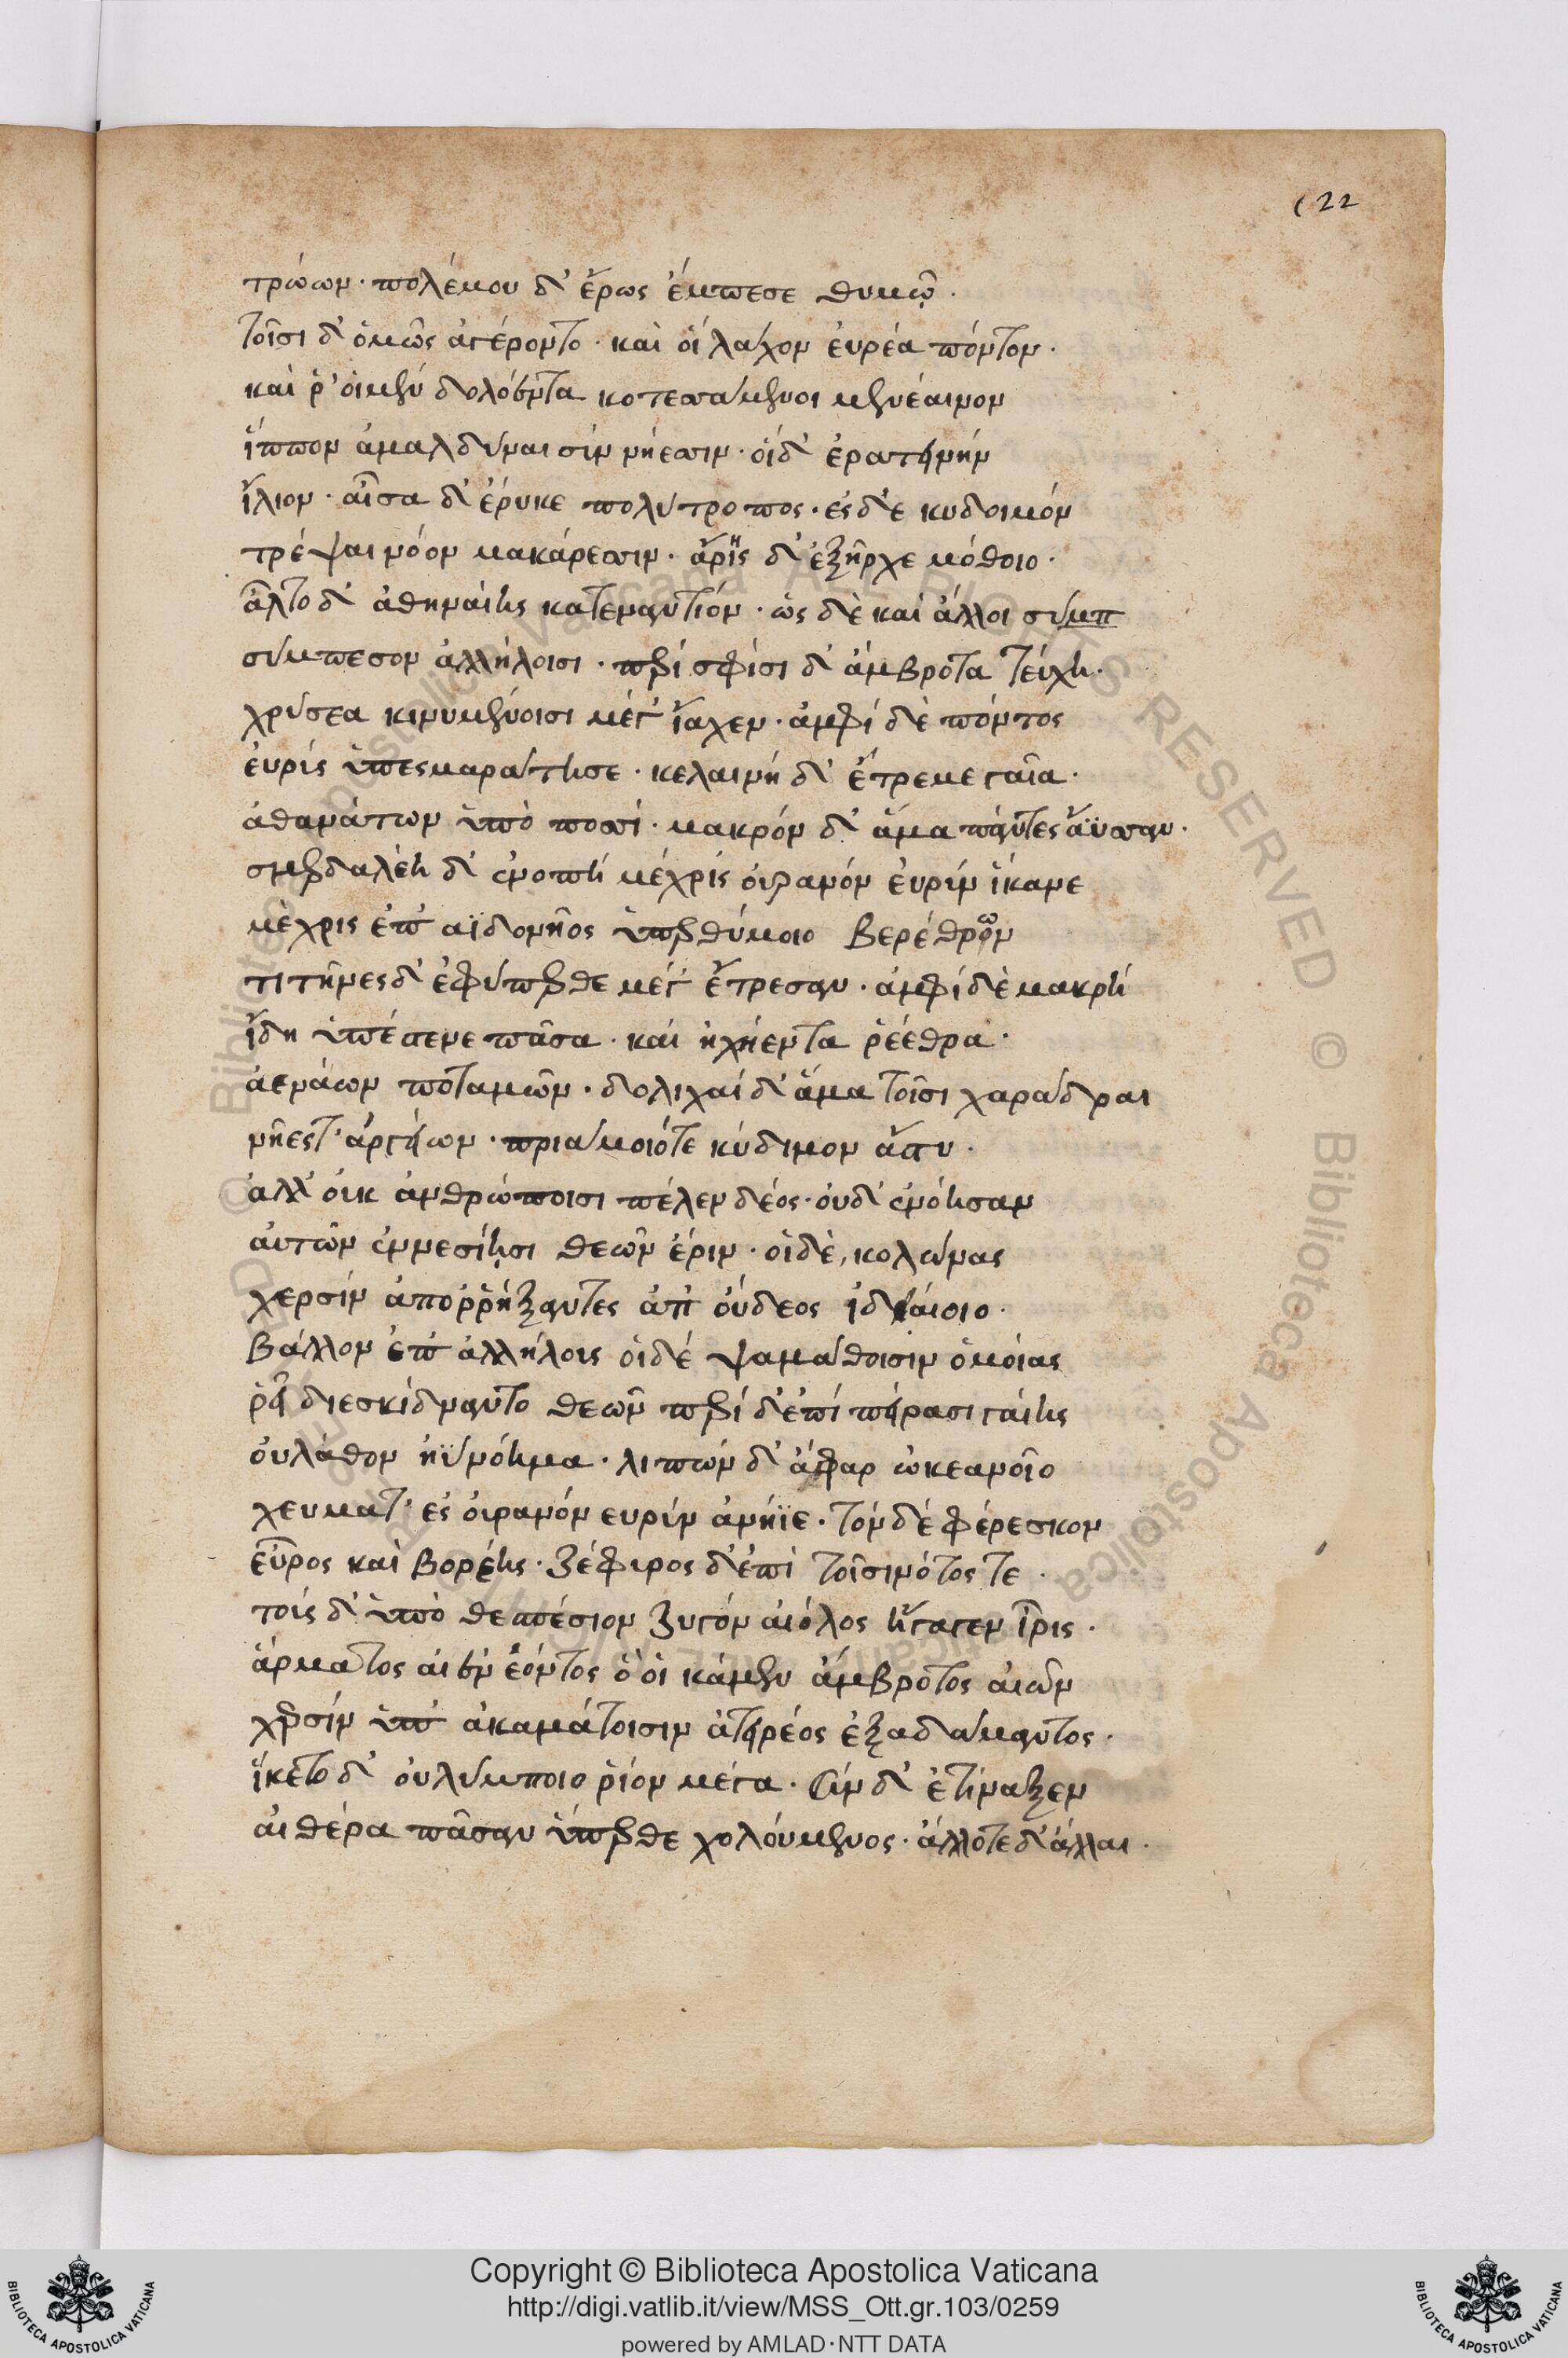 122
τρώων · πολέμου δ' ἔρως ἔμπεσε θυμῷ ·
τοῖσι δ' ὁμῶς ἀγέροντο · καὶ οἳ λάχον ἐυρέα πόντον ·
καί ῥ' οἱ μὲν δολόεντα κοτεσσάμενοι μενέαινον
ἵππον ἀμαλδύναι σὺν νήεσσιν · οἱ δ' ἐρατεινὴν
ἴλιον · αἶσα δ' ἔρυκε πολύτροπος · ἐς δὲ κυδοιμὸν
τρέψαι νόον μακάρεσσιν · ἄρης δ' ἐξῆρχε μόθοιο ·
ἆλτο δ' ἀθηναίης κατεναντίον · ὣς δὲ καὶ ἄλλοι συμπ
σύμπεσον ἀλλήλοισι · περὶ σφίσι δ' ἄμβροτα τεύχη ·
χρύσεα κινυμένοισι μέγ' ἴαχεν · ἀμφὶ δὲ πόντος
ἐυρὺς ὑπεσμαράγησε · κελαινὴ δ' ἔτρεμε γαῖα ·
ἀθανάτων ὑπὸ ποσσί · μακρὸν δ' ἅμα πάντες ἄϋσαν ·
σμερδαλέη δ' ἐνοπὴ μέχρις οὐρανὸν ἐυρὺν ἵκανε
μέχρις ἐπ' αϊδονῆος ὑπερθύμοιο βερέθρων
τιτῆνες δ' ἐφύπερθε μέγ' ἔτρεσαν · ἀμφὶ δὲ μακρὴ
ἴδη ὑπέστενε πᾶσα · καὶ ἠχήεντα ῥέεθρα ·
ἀενάων ποταμῶν · δολιχαὶ δ' ἅμα τοῖσι χαράδραι
νῆές τ' ἀργείων · πριάμοιό τε κύδιμον ἄστυ ·
ἀλλ' οὐκ ἀνθρώποισι πέλεν δέος · οὐδ' ἐνόησαν
αὐτῶν ἐννεσίῃσι θεῶν ἔριν · οἱ δὲ, κολώνας
χερσὶν ἀπορρήξαντες ἀπ' ούδεος ἰδαίοιο ·
βάλλον ἐπ' ἀλλήλοις οἱ δὲ ψαμάθοισιν ὁμοίας
ῥεῖα διεσκίδναντο θεῶν περὶ δ' ἐπὶ πείρασι γαίης
οὐ λάθον ἠΰ νόημα · λιπὼν δ' ἄφαρ ὠκεανοῖο
χευματ' ἐς οὐρανὸν ευρὺν ἀνήϊε · τὸν δὲ φέρεσκον
εὖρος καὶ βορέης · ζέφυρος δ' ἐπὶ τοῖσι νότος τε ·
τοὺς δ' ὑπὸ θεσπέσιον ζυγὸν αἰόλος ἤγαγεν ἶρις ·
ἅρματος αἰὲν ἐόντος ὅ οἱ κάμεν ἄμβροτος αἰὼν
χερσὶν ὑπ' ἀκαμάτοισιν ἀτειρέος ἐξ ἀδάμαντος ·
ἵκετο δ' οὐλύμποιο ῥίον μέγα · σὺν δ' ἐτίναξεν
αἰθέρα πᾶσαν ὕπερθε χολούμενος · ἄλλοτε δ' ἄλλαι ·
Copyright © Biblioteca Apostolica Vaticana
http://digi.vatlib.it/view/MSS_Ott.gr.103/0259
powered by AMLAD·NTT DATA